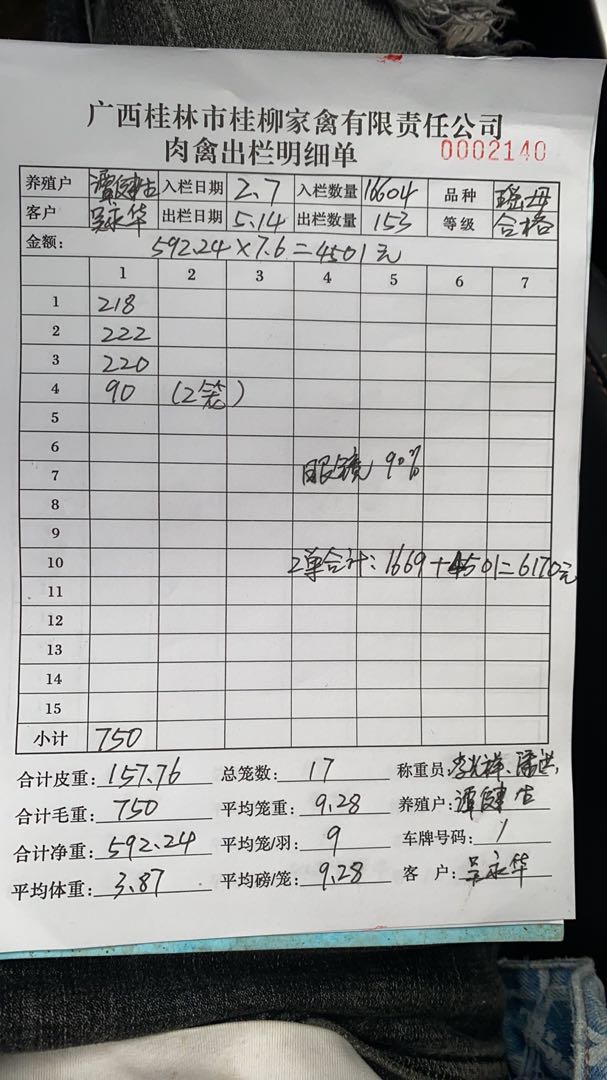 广西桂林市桂柳家禽有限责任公司
肉禽出栏明细单 0002140
养殖户 谭健古 入栏日期 2.7 入栏数量 16604 品种 瑶母
客户 吴永华 出栏日期 5.14 出栏数量 153 等级 合格
金额: 592.24×7.6=4501元
1 2 3 4 5 6 7
1 218
2 222
3 220
4 90 (2笼)
5
6
7 眼镜 90%
8
9
10 2单合计:1669+4501=6170元
11
12
13
14
15
小计 750
合计皮重:157.76 总笼数:17 称重员:李光祥、
合计毛重:750 平均笼重:9.28 养殖户:谭健古
合计净重:592.24 平均笼/羽:9 车牌号码:/
平均体重:3.87 平均磅/笼:9.28 客户:吴永华